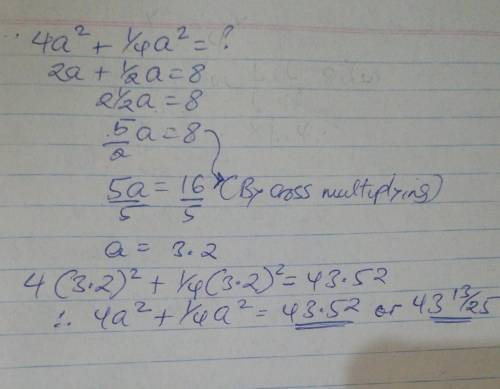 4a² + ¼a² = ?
2a + ½a = 8
2½a = 8
5/2 a = 8
5a/5 = 16/5 (By cross multiplying)
a = 3.2
4(3.2)² + ¼(3.2)² = 43.52
∴ 4a² + ¼a² = 43.52 or 43 13/25